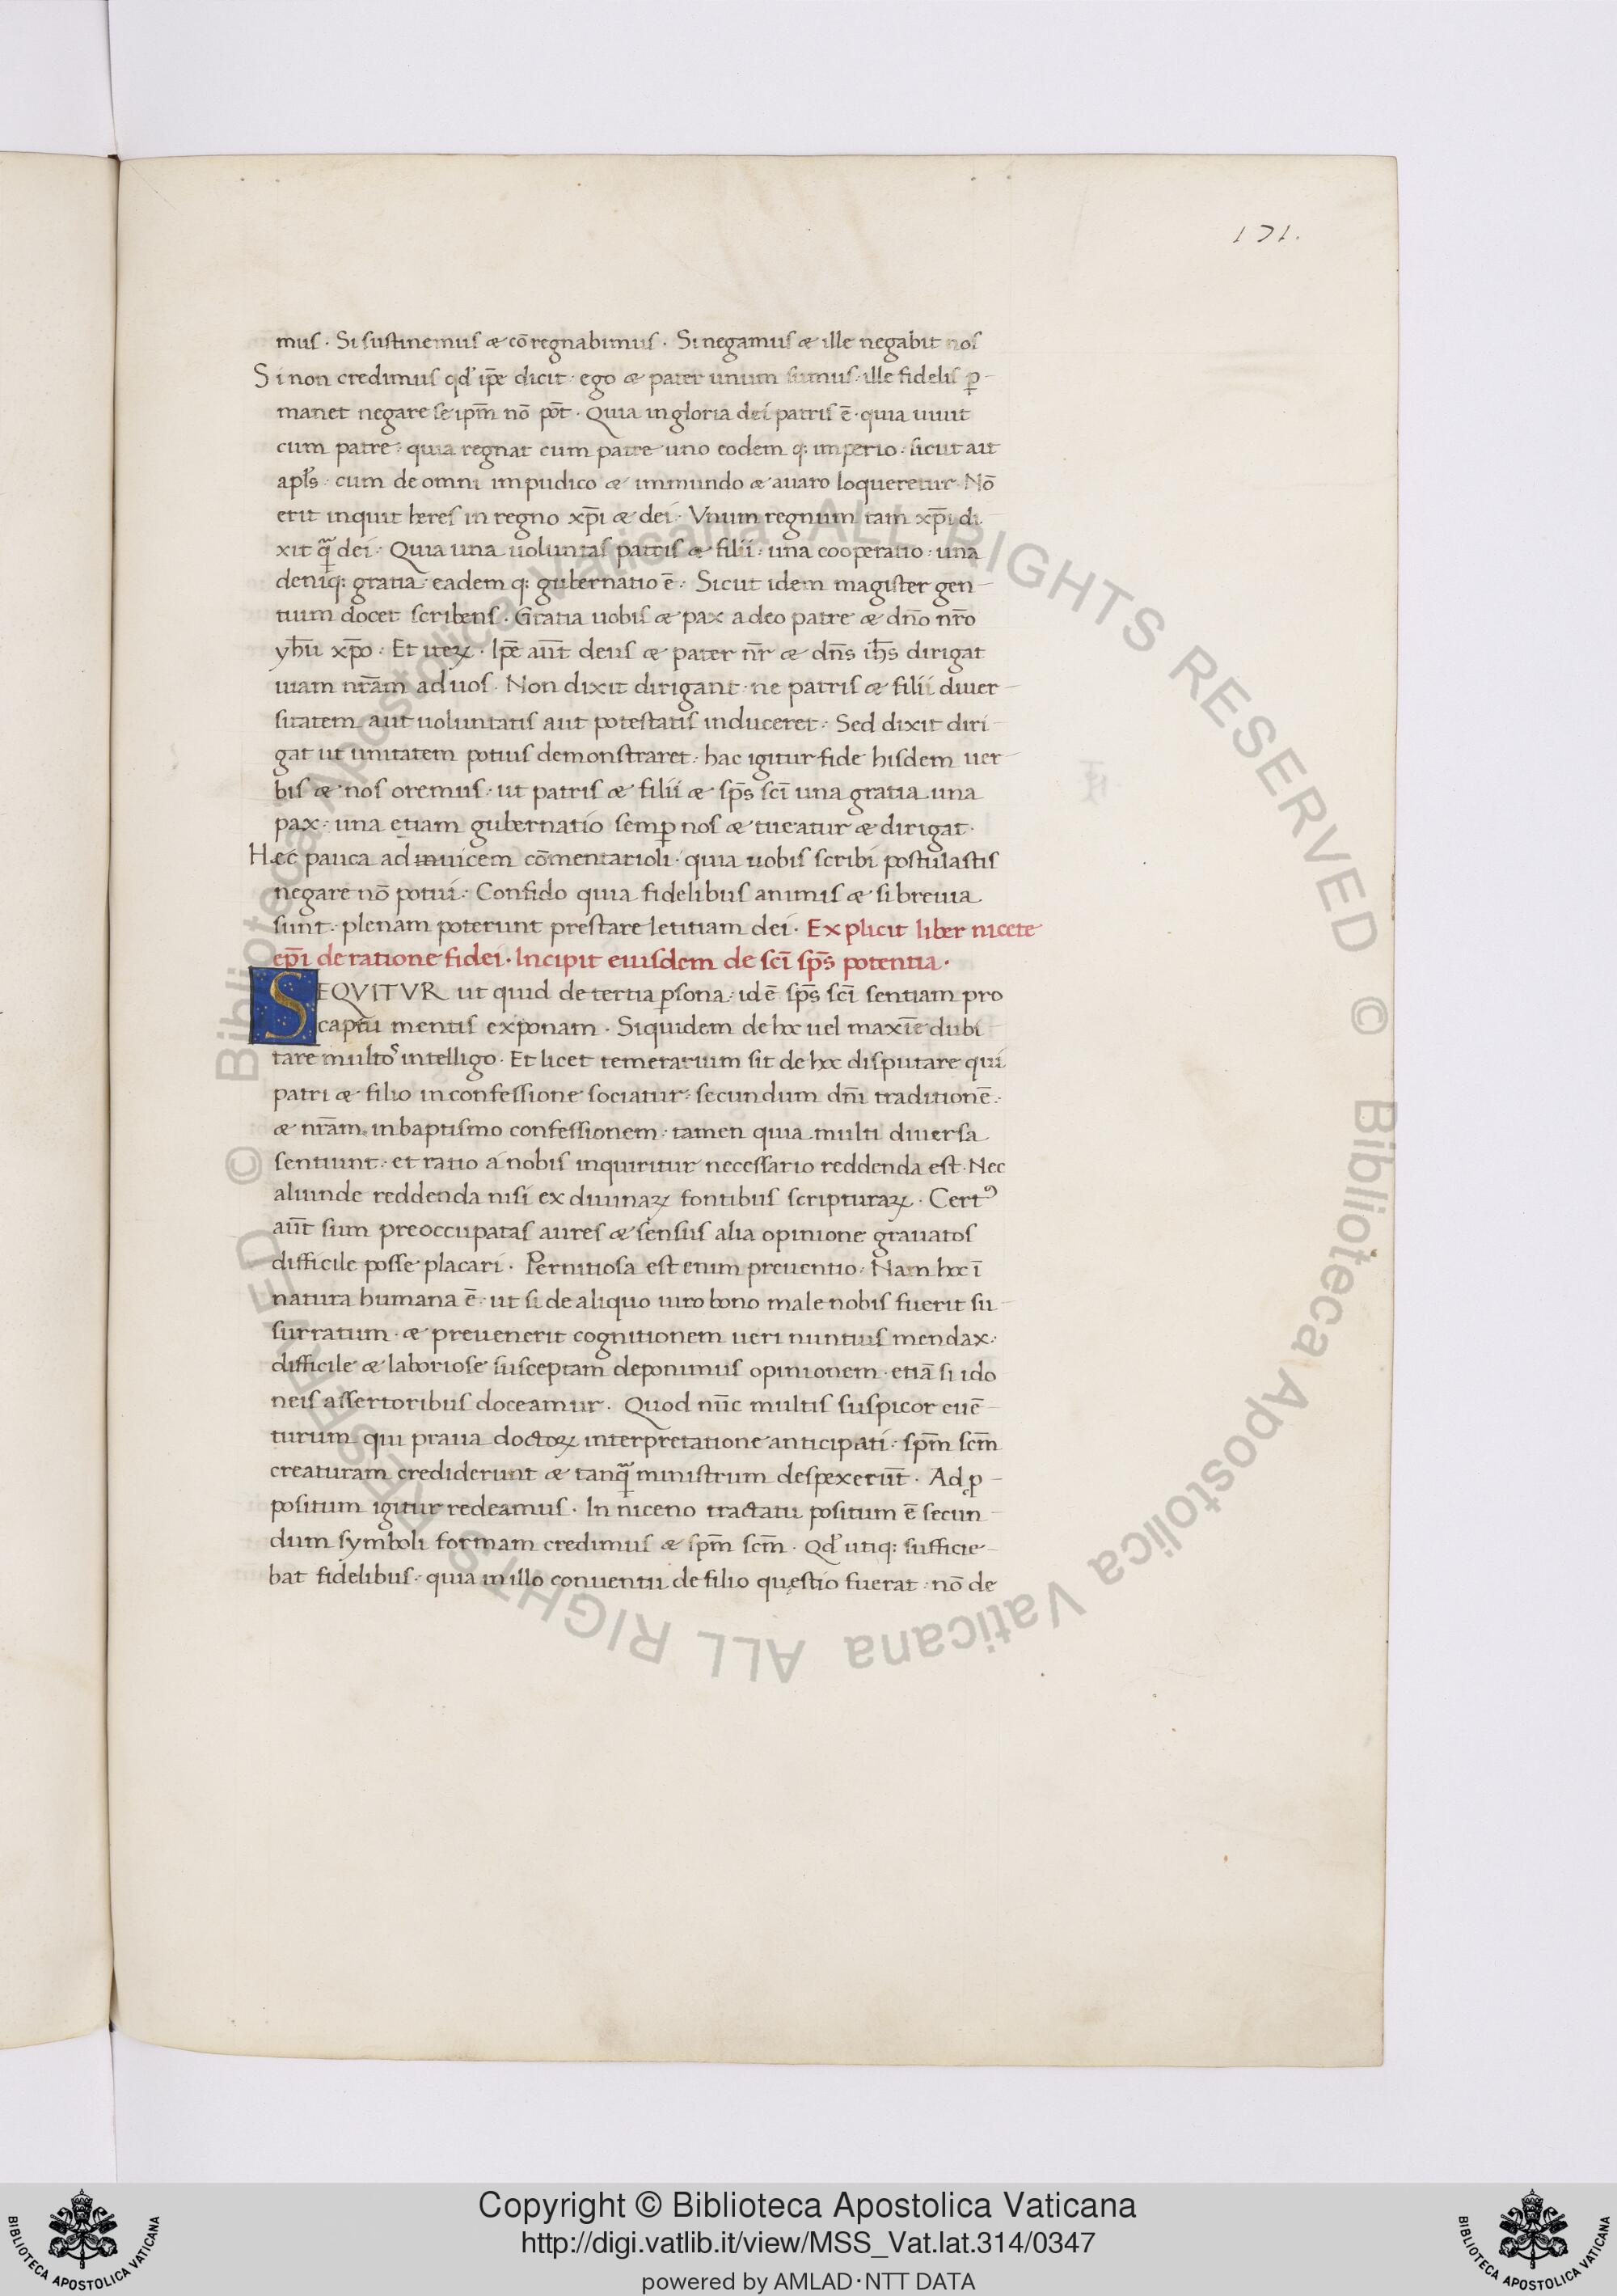 171.
mus · Si sustinemus & cōregnabimus · Si negamus & ille negabit nos
Si non credimus qd' ip̄e dicit · ego & pater unum sumus · ille fidelis ꝑ-
manet negare se ipm̄ nō pōt · Quia in gloria dei patris ē · quia uiuit
cum patre · quia regnat cum patre uno eodem q: imperio · sicut ait
apl̄s · cum de omni impudico & immundo & auaro loqueretur · Nō
erit inquit heres in regno xp̄i & dei · Vnum regnum tam xp̄i di
xit q̄ dei · Quia una uoluntas patris & filii · una cooperatio · una
deniq: gratia · eadem q: gubernatio ē · Sicut idem magister gen-
tium docet scribens · Gratia uobis & pax a deo patre & dn̄o nr̄o
yhū xp̄o · Et iteꝝ · Ip̄e aūt deus & pater nr̄ & dn̄s ih̄s dirigat
uiam nr̄am ad uos · Non dixit dirigant · ne patris & filii diuer-
sitatem aut uoluntatis aut potestatis induceret · Sed dixit diri-
gat ut unitatem potius demonstraret · hac igitur fide hisdem uer-
bis & nos oremus · ut patris & filii & sp̄s sc̄i una gratia una
pax · una etiam gubernatio semꝑ nos & tueatur & dirigat ·
Hec pauca ad inuicem cōmentarioli · quia uobis scribi postulastis
negare nō potui · Confido quia fidelibus animis & si breuia
sunt · plenam poterunt prestare letitiam dei · Explicit liber nicete
ep̄i de ratione fidei · Incipit eiusdem de sc̄i sp̄s potentia ·
SEQVITVR ut quid de tertia ꝑsona · id ē sp̄s sc̄i sentiam pro
captu mentis exponam · Siquidem de hoc uel maxīe dubi
tare multos intelligo · Et licet temerarium sit de hoc disputare qui
patri & filio in confessione sociatur · secundum dn̄i traditionē ·
& nr̄am in baptismo confessionem · tamen quia multi diuersa
sentiunt · et ratio a nobis inquiritur necessario reddenda est · Nec
aliunde reddenda nisi ex diuinaꝝ fontibus scripturaꝝ · Certꝰ
aūt sum preoccupatas aures & sensus alia opinione grauatos
difficile posse placari · Pernitiosa est enim preuentio · Nam hoc ī
natura humana ē · ut si de aliquo uiro bono male nobis fuerit su-
surratum · & preuenerit cognitionem ueri nuntius mendax ·
difficile & laboriose susceptam deponimus opinionem · etiā si ido
neis assertoribus doceamur · Quod nūc multis suspicor euē-
turum qui praua doctoꝝ interpretatione anticipati · spm̄ scm̄
creaturam crediderunt & tanq̄ ministrum despexerūt · Ad ꝓ-
positum igitur redeamus · In niceno tractatu positum ē secun-
dum symboli formam credimus & spm̄ scm̄ · Qd' utiq: sufficie-
bat fidelibus · quia in illo conuentu de filio quęstio fuerat · nō de
© Biblioteca Apostolica Vaticana ALL RIGHTS RESERVED © Biblioteca Apostolica Vaticana ALL RIGHTS RESERVED
Copyright © Biblioteca Apostolica Vaticana
http://digi.vatlib.it/view/MSS_Vat.lat.314/0347
powered by AMLAD·NTT DATA
BIBLIOTECA APOSTOLICA VATICANA
BIBLIOTECA APOSTOLICA VATICANA